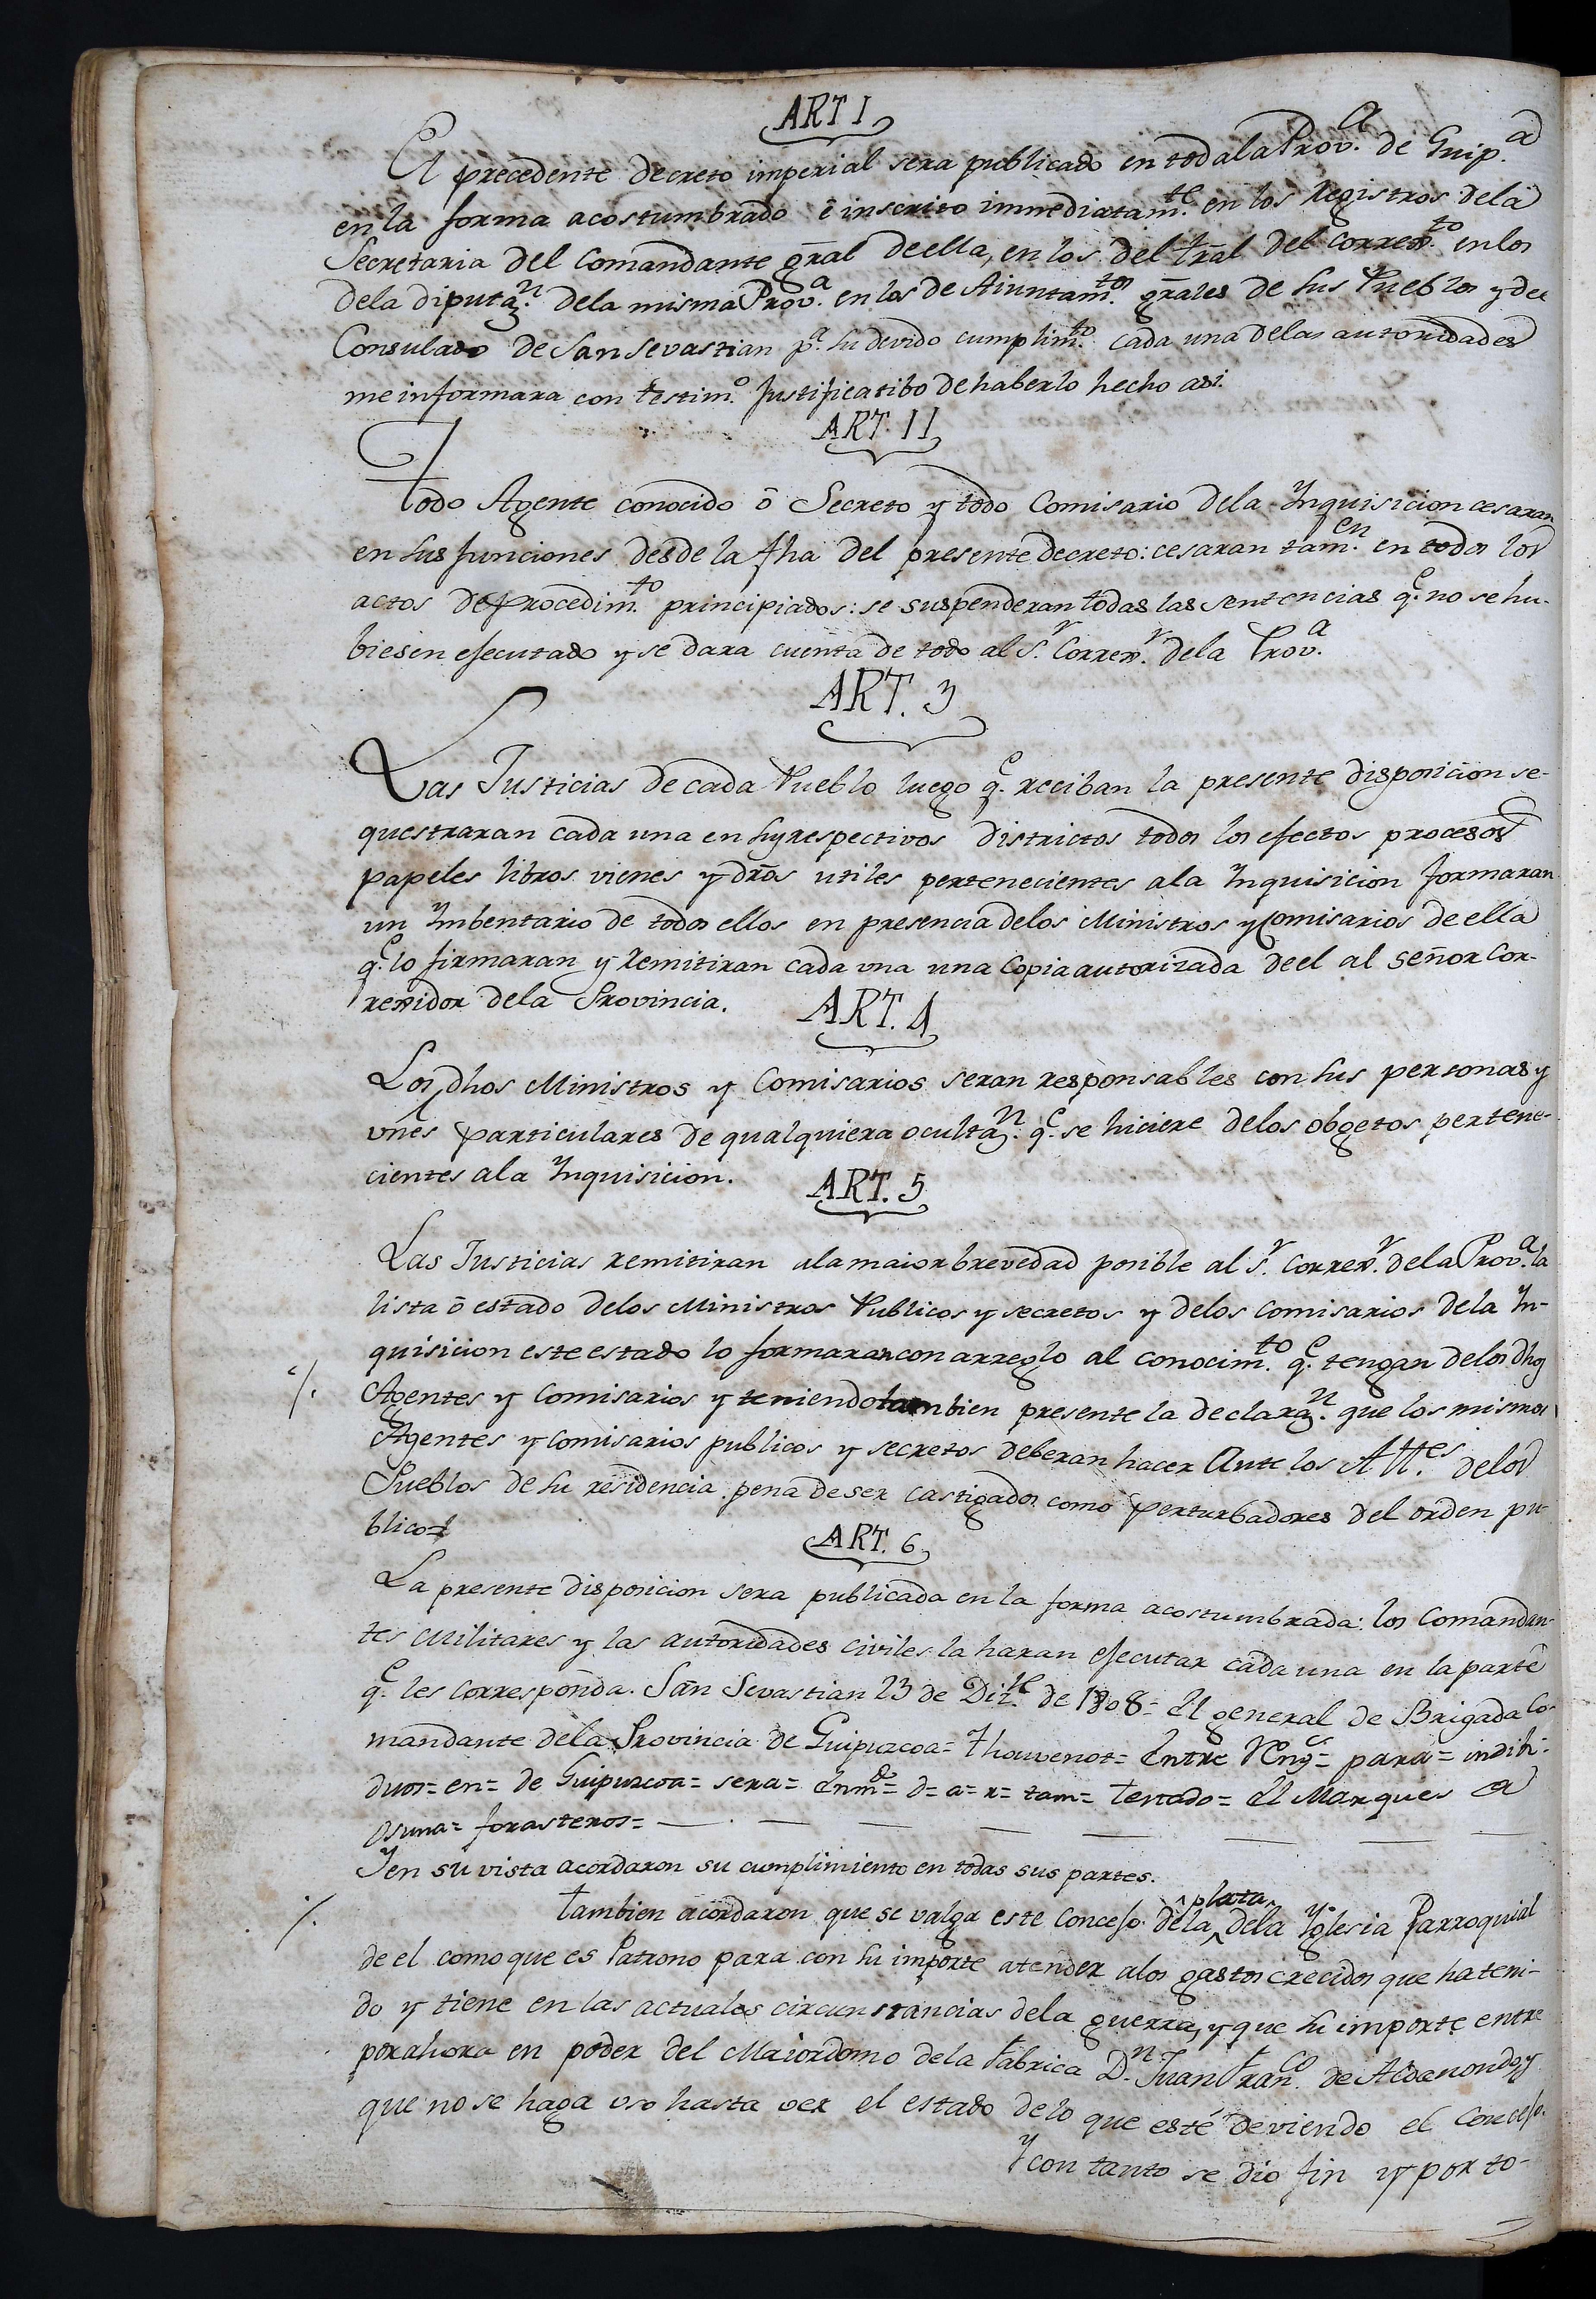 ART I
El precedente decreto imperial sera publicado en toda la Prov.ª de Guip.ª
en la forma acostumbrado é inscrito immediatam.te en los Registros dela
Secretaria del Comandante gral deella, en los del tral del Correx.to en los
dela diputaz.n dela misma Prov.ª en los de Aiuntam.tos grales de sus Pueblos y del
Consulado de San Sevastian p.ª su devido cumplim.to cada una delas autoridades
me informara con testim.o Justificatibo de haberlo hecho asi.
ART. II
Todo Agente conocido ó Secreto y todo Comisario dela Ynquisicion cesaran
en sus funciones desde la fha del presente decreto: cesaran tam.en en todos los
actos de procedim.to principiados: se suspenderan todas las sentencias q.e no se hu-
biesen esecutado y se dara cuenta de todo al S.r Correx.r dela Prov.ª
ART. 3
Las Justicias de cada Pueblo luego q.e reciban la presente disposicion se-
questraran cada una en sus respectivos districtos todos los efectos procesos
papeles libros vienes y dros utiles pertenecientes ala Ynquisicion formaran
un Ynbentario de todos ellos en presencia delos Ministros y Comisarios de ella
q.e lo firmaran y Remitiran cada una una Copia autorizada deel al señor Cor-
rexidor dela Provincia.
ART. 4
Los dhos Ministros y Comisarios seran responsables con sus personas y
vnes particulares de qualquiera ocultaz.n q.e se hiciere delos obgetos pertene-
cientes ala Ynquisicion.
ART. 5
Las Justicias remitiran ala maior brevedad posible al S.r Correx.r dela Prov.ª la
lista ó estado delos Ministros Publicos y secretos y delos Comisarios dela Yn-
quisicion este estado lo formaran con arreglo al conocim.to q.e tengan delos dhos
Agentes y Comisarios y teniendo tambien presente la declaraz.n que los mismos
Agentes y Comisarios publicos y secretos deberan hacer Ante los Alt.es delos
Pueblos de su residencia pena de ser castigados como perturbadores del orden pu-
blico=
ART. 6
La presente disposicion sera publicada en la forma acostumbrada: los Comandan-
tes Militares y las autoridades civiles la haran esecutar cada una en la parte
q.e les corresponda. San Sevastian 23 de Diz.re de 1808= El general de Brigada Co-
mandante dela Provincia de Guipuzcoa= Thouvenot= Entre Reng.s= para= indibi-
duos= en= de Guipuzcoa= sera= Enm.do= d= a= r= tam= testado= El Marques de
Osuna= forasteros=
Y en su vista acordaron su cumplimiento en todas sus partes.
Tambien acordaron que se valga este Concejo dela ^plata^ dela Yglesia Parroquial
de el como que es Patrono para con su importe atender alos gastos crecidos que ha teni-
do y tiene en las actuales circunstancias dela guerra, y que su importe entre
por ahora en poder del Maiordomo dela Fabrica D.n Juan Fran.co de Aldanondo, y
que no se haga uso hasta ver el estado delo que esté deviendo el Concejo.
Y con tanto se dio fin y por to-